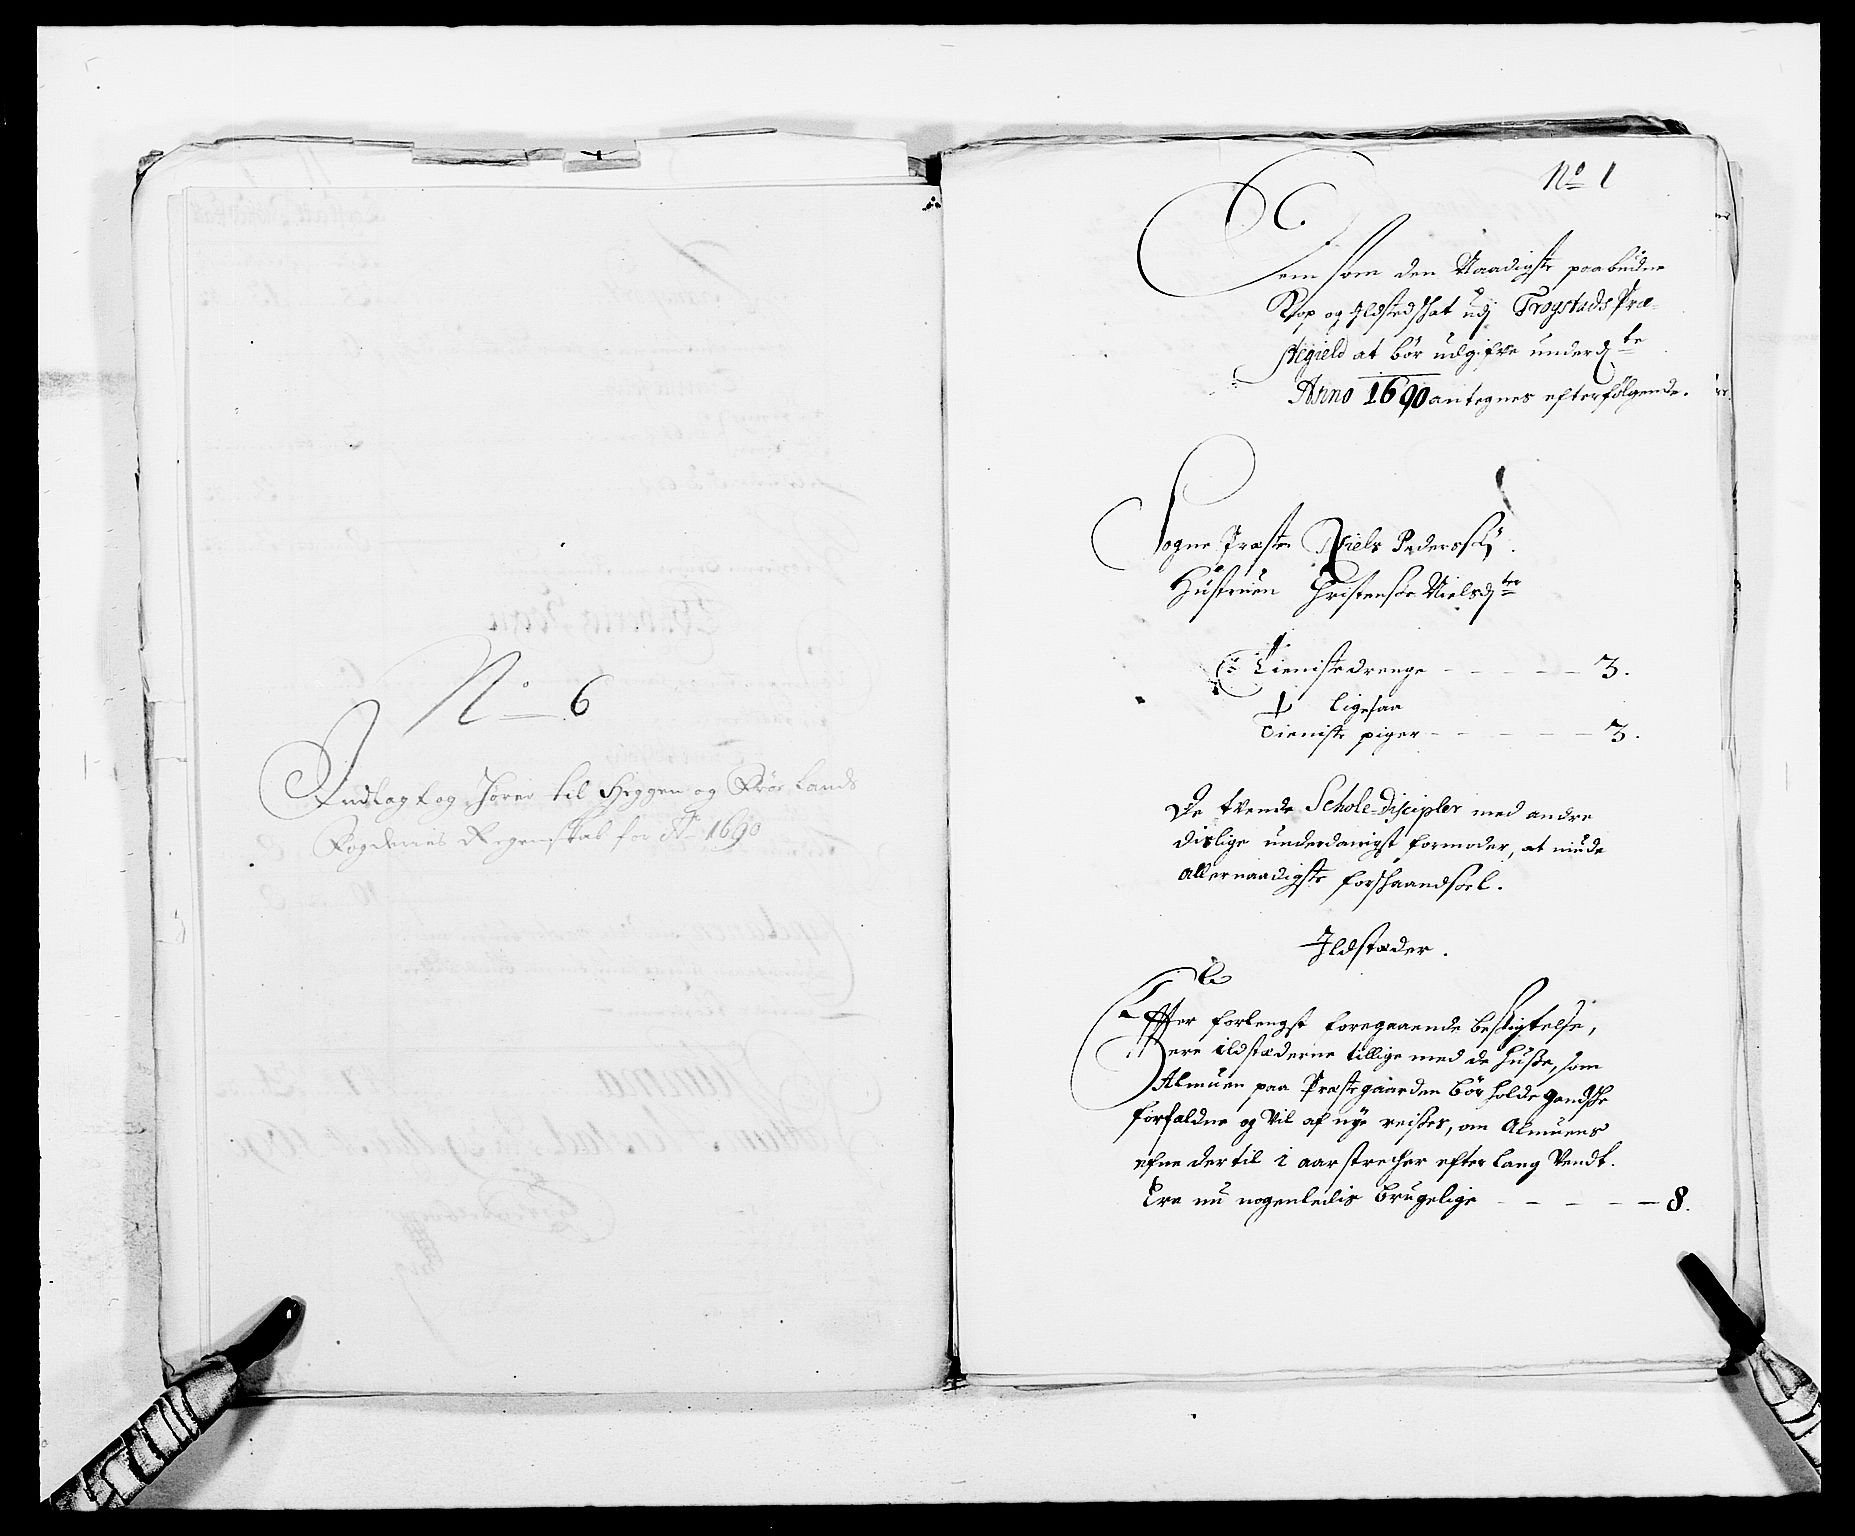 No 6
Indlagt og hører til Heggen og Frøs Lands
Fogderies Regenskab for Ao 1690
No 1
Dem som den Naadigste paabudne
Kop og Ildstedshat udj Trøgstads Præ-
stegield at bør udgifve underd te
Anno 1690 antegnes efterfølgende.
Sogne Præsten Niels Pederss
Hustruen Christense Nielsd ter
Tieniste drenge - - - - - 3.
ligesaa
Tieniste piger - - - - - 3.
De tvende Schole-Discipler med andre
dislige underdanigst formoder, at niude
allernaadigste forskaandsel.
Ildstæder.
Effter forlengst foregaaende besigtelse,
ere ildstæderne tillige med de huse, som
Almuen paa Præstegaarden bør holde gandske
forfaldne og vil af nye reises, om Almuens
efne dertil i aar strecher efter lang Vendt.
Ere nu nogenledis brugelige - - - - 8.